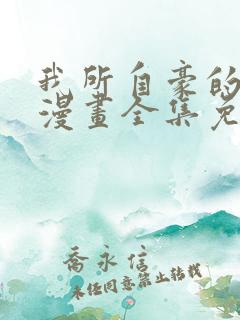 我所自豪的
漫畫全集免
喬永信
未经同意禁止转载